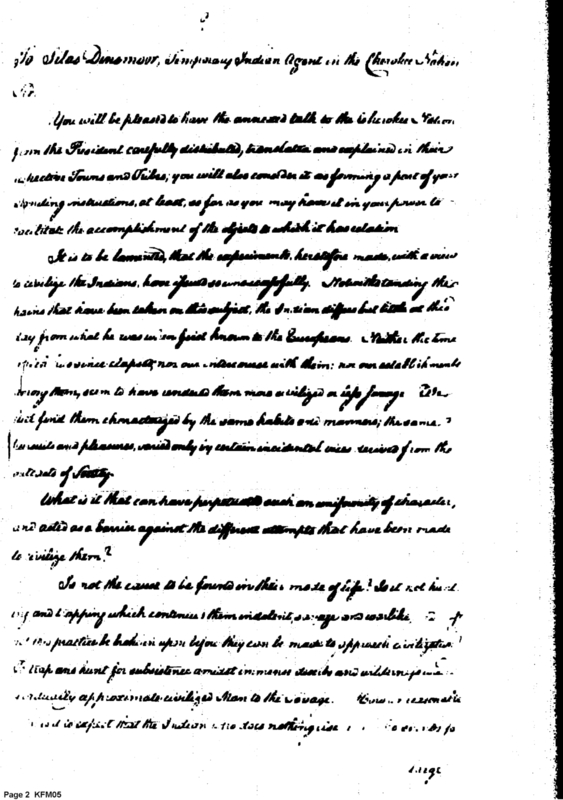 To Silas Dinsmoor, Temporary Indian Agent in the Cherokee Nation
Sir.
You will be pleased to have the annexed talk to the Cherokee Nation
from the President carefully distributed, translated and explained in their
respective Towns and Tribes; you will also consider it as forming a part of your
standing instructions, at least, as far as you may have it in your power to
facilitate the accomplishment of the objects to which it has relation
It is to be lamented, that the experiments, heretofore made, with a view
to civilize the Indians, have issued so unsuccessfully. Notwithstanding the
pains that have been taken on this subject, the Indian differs but little at this
day from what he was when first known to the Europeans. Neither the time
which has since elapsed, nor our intercourse with them; nor our establishments
among them, seem to have rendered them more civilized or less savage We
still find them characterized by the same habits and manners; the same
pursuits and pleasures, varied only by certain incidental vices derived from the
outcasts of Society.
What is it that can have perpetuated such an uniformity of character,
and acted as a barrier against the different attempts that have been made
to civilize them?
Is not the cause to be found in their mode of life? Is it not hunt
ing and trapping which continues them indolent, savage and warlike
practice be broken in upon before they can be made to approach civilization?
To trap and hunt for subsistence amidst immense deserts and wilderness
approximate civilized Man to the Savage. reasonable
is it to expect that the Indian who does nothing else
Page 2 KFM05